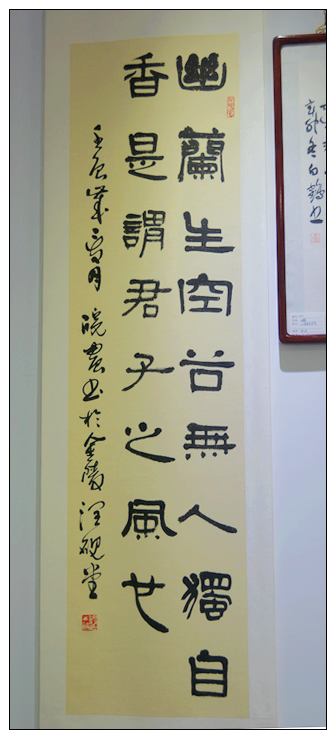 幽蘭生空谷無人獨自
香是謂君子之風也
壬辰歲二月皖農書於金陵潤硯堂